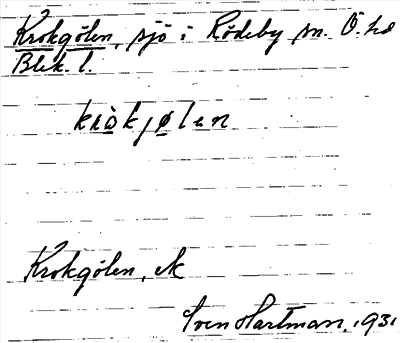 Krokgölen, sjö i Rödeby sn. Ö. hd
Blek. l.
kròkjølen
Krokgölen, ek
Sven Hartman, 1931